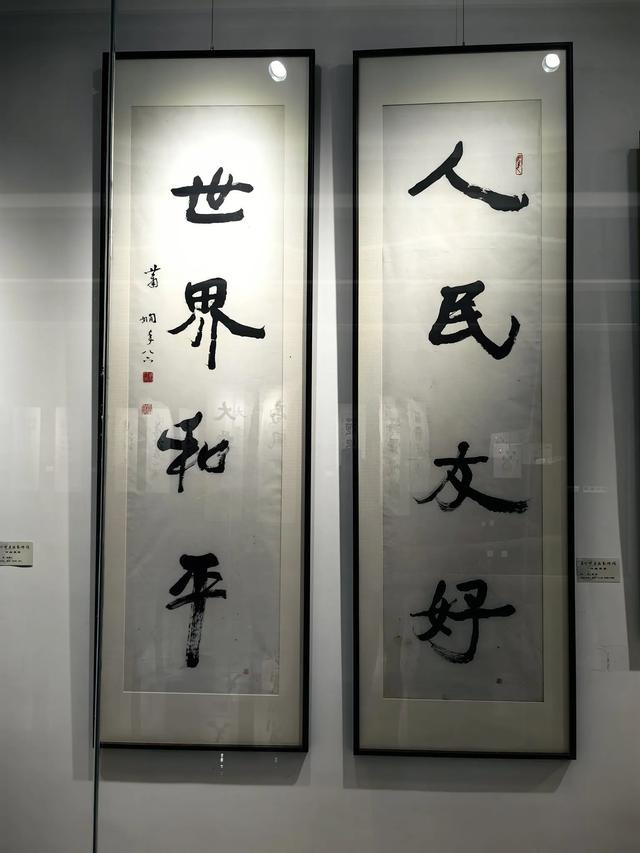 人民友好
世界和平
蕭娴年八六